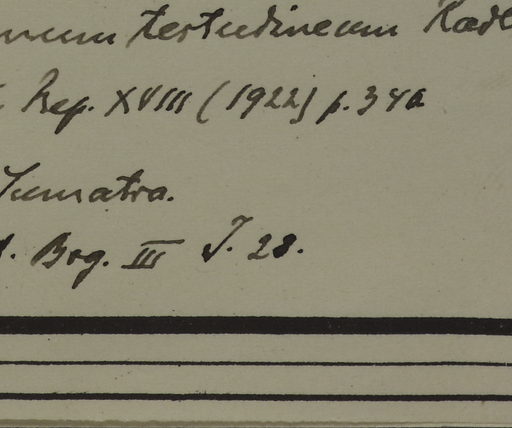 testudineum
Rep. XVIII (1922) p. 342
Sumatra.
Bog. III J. 28.